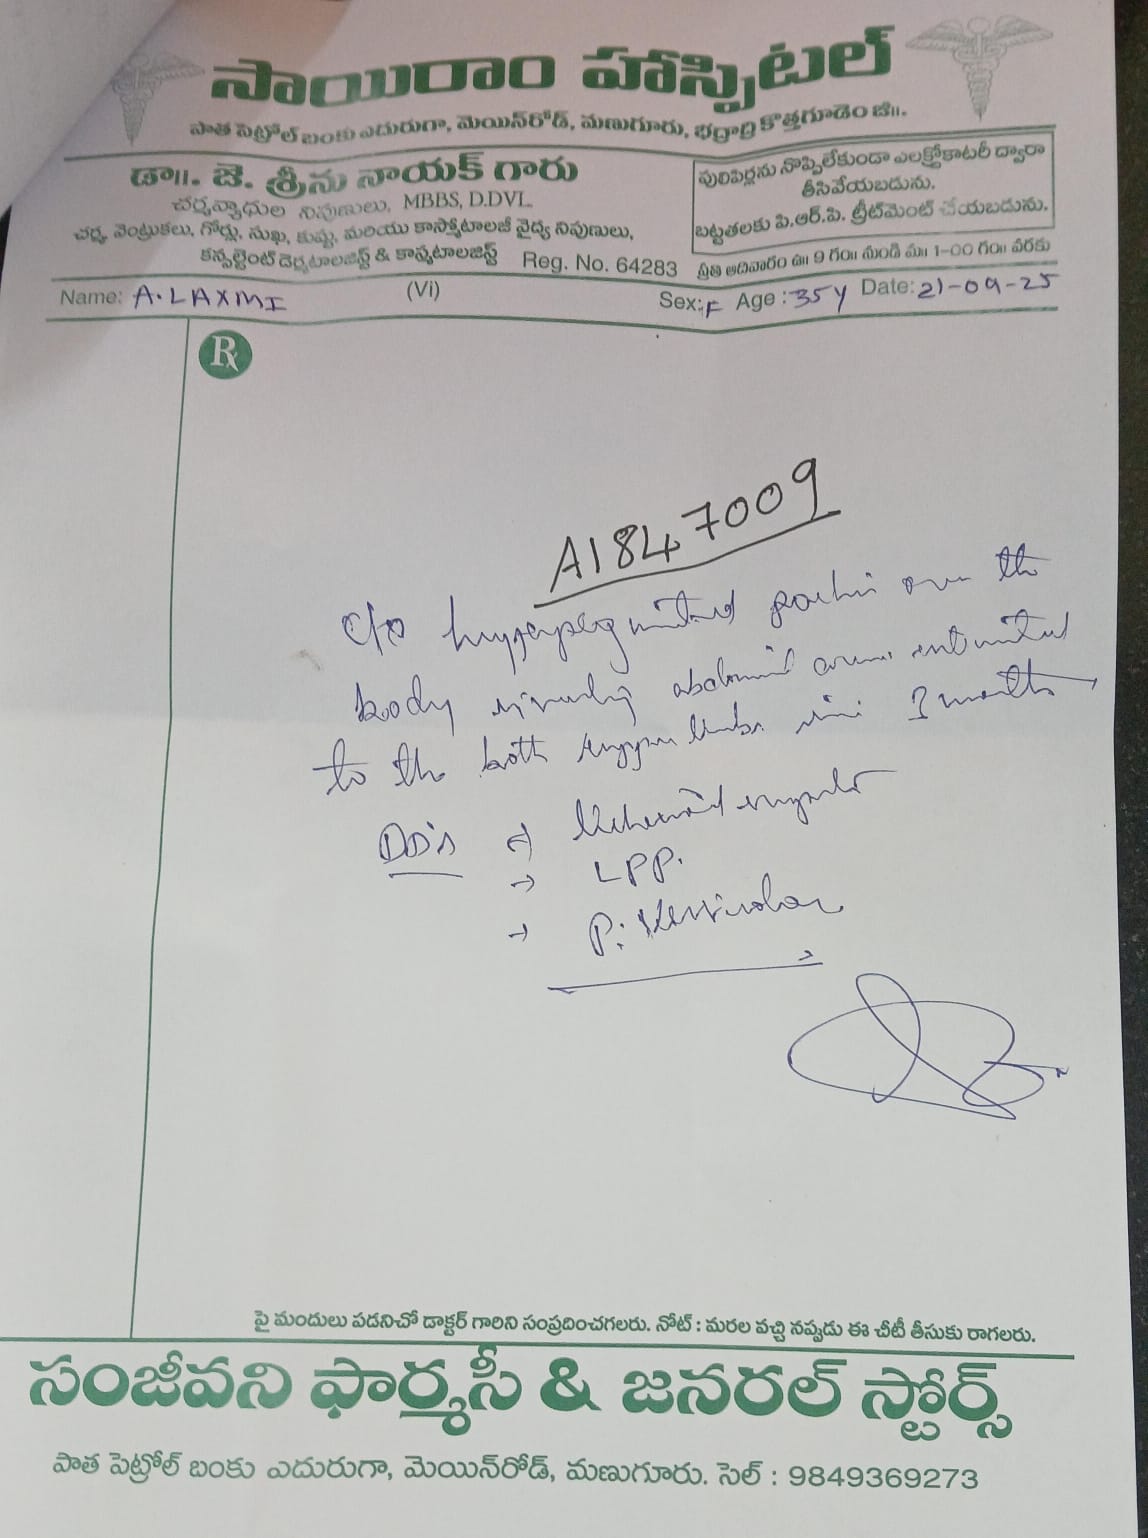 సాయిరాం హాస్పిటల్
పాత పెట్రోల్ బంకు ఎదురుగా, మెయిన్‌రోడ్, మణుగూరు, భద్రాద్రి కొత్తగూడెం జిll.
డాll. జె. శ్రీను నాయక్ గారు
చర్మవ్యాధుల నిపుణులు, MBBS, D.DVL.
చర్మ, వెంట్రుకలు, గోర్లు, సుఖ, కుష్ఠు, మరియు కాస్మోటాలజీ వైద్య నిపుణులు,
కన్సల్టెంట్ డెర్మటాలజిస్ట్ & కాస్మటాలజిస్ట్ Reg. No. 64283
పులిపిర్లను నొప్పిలేకుండా ఎలక్ట్రోకాటరీ ద్వారా
తీసివేయబడును.
బట్టతలకు పి.ఆర్.పి. ట్రీట్‌మెంట్ చేయబడును.
ప్రతి ఆదివారం ఉll 9 గంll నుండి మll 1-00 గంll వరకు
Name: A.LAXMI (Vi) Sex: F Age: 35Y Date: 21-09-25
Rx
A1847009
c/o hyperpigmented over the
body abdominal
to the both upper limbs 3 months
DD's
→ LPP.
→
పై మందులు పడనిచో డాక్టర్ గారిని సంప్రదించగలరు. నోట్ : మరల వచ్చినప్పుడు ఈ చీటీ తీసుకు రాగలరు.
సంజీవని ఫార్మసీ & జనరల్ స్టోర్స్
పాత పెట్రోల్ బంకు ఎదురుగా, మెయిన్‌రోడ్, మణుగూరు. సెల్ : 9849369273